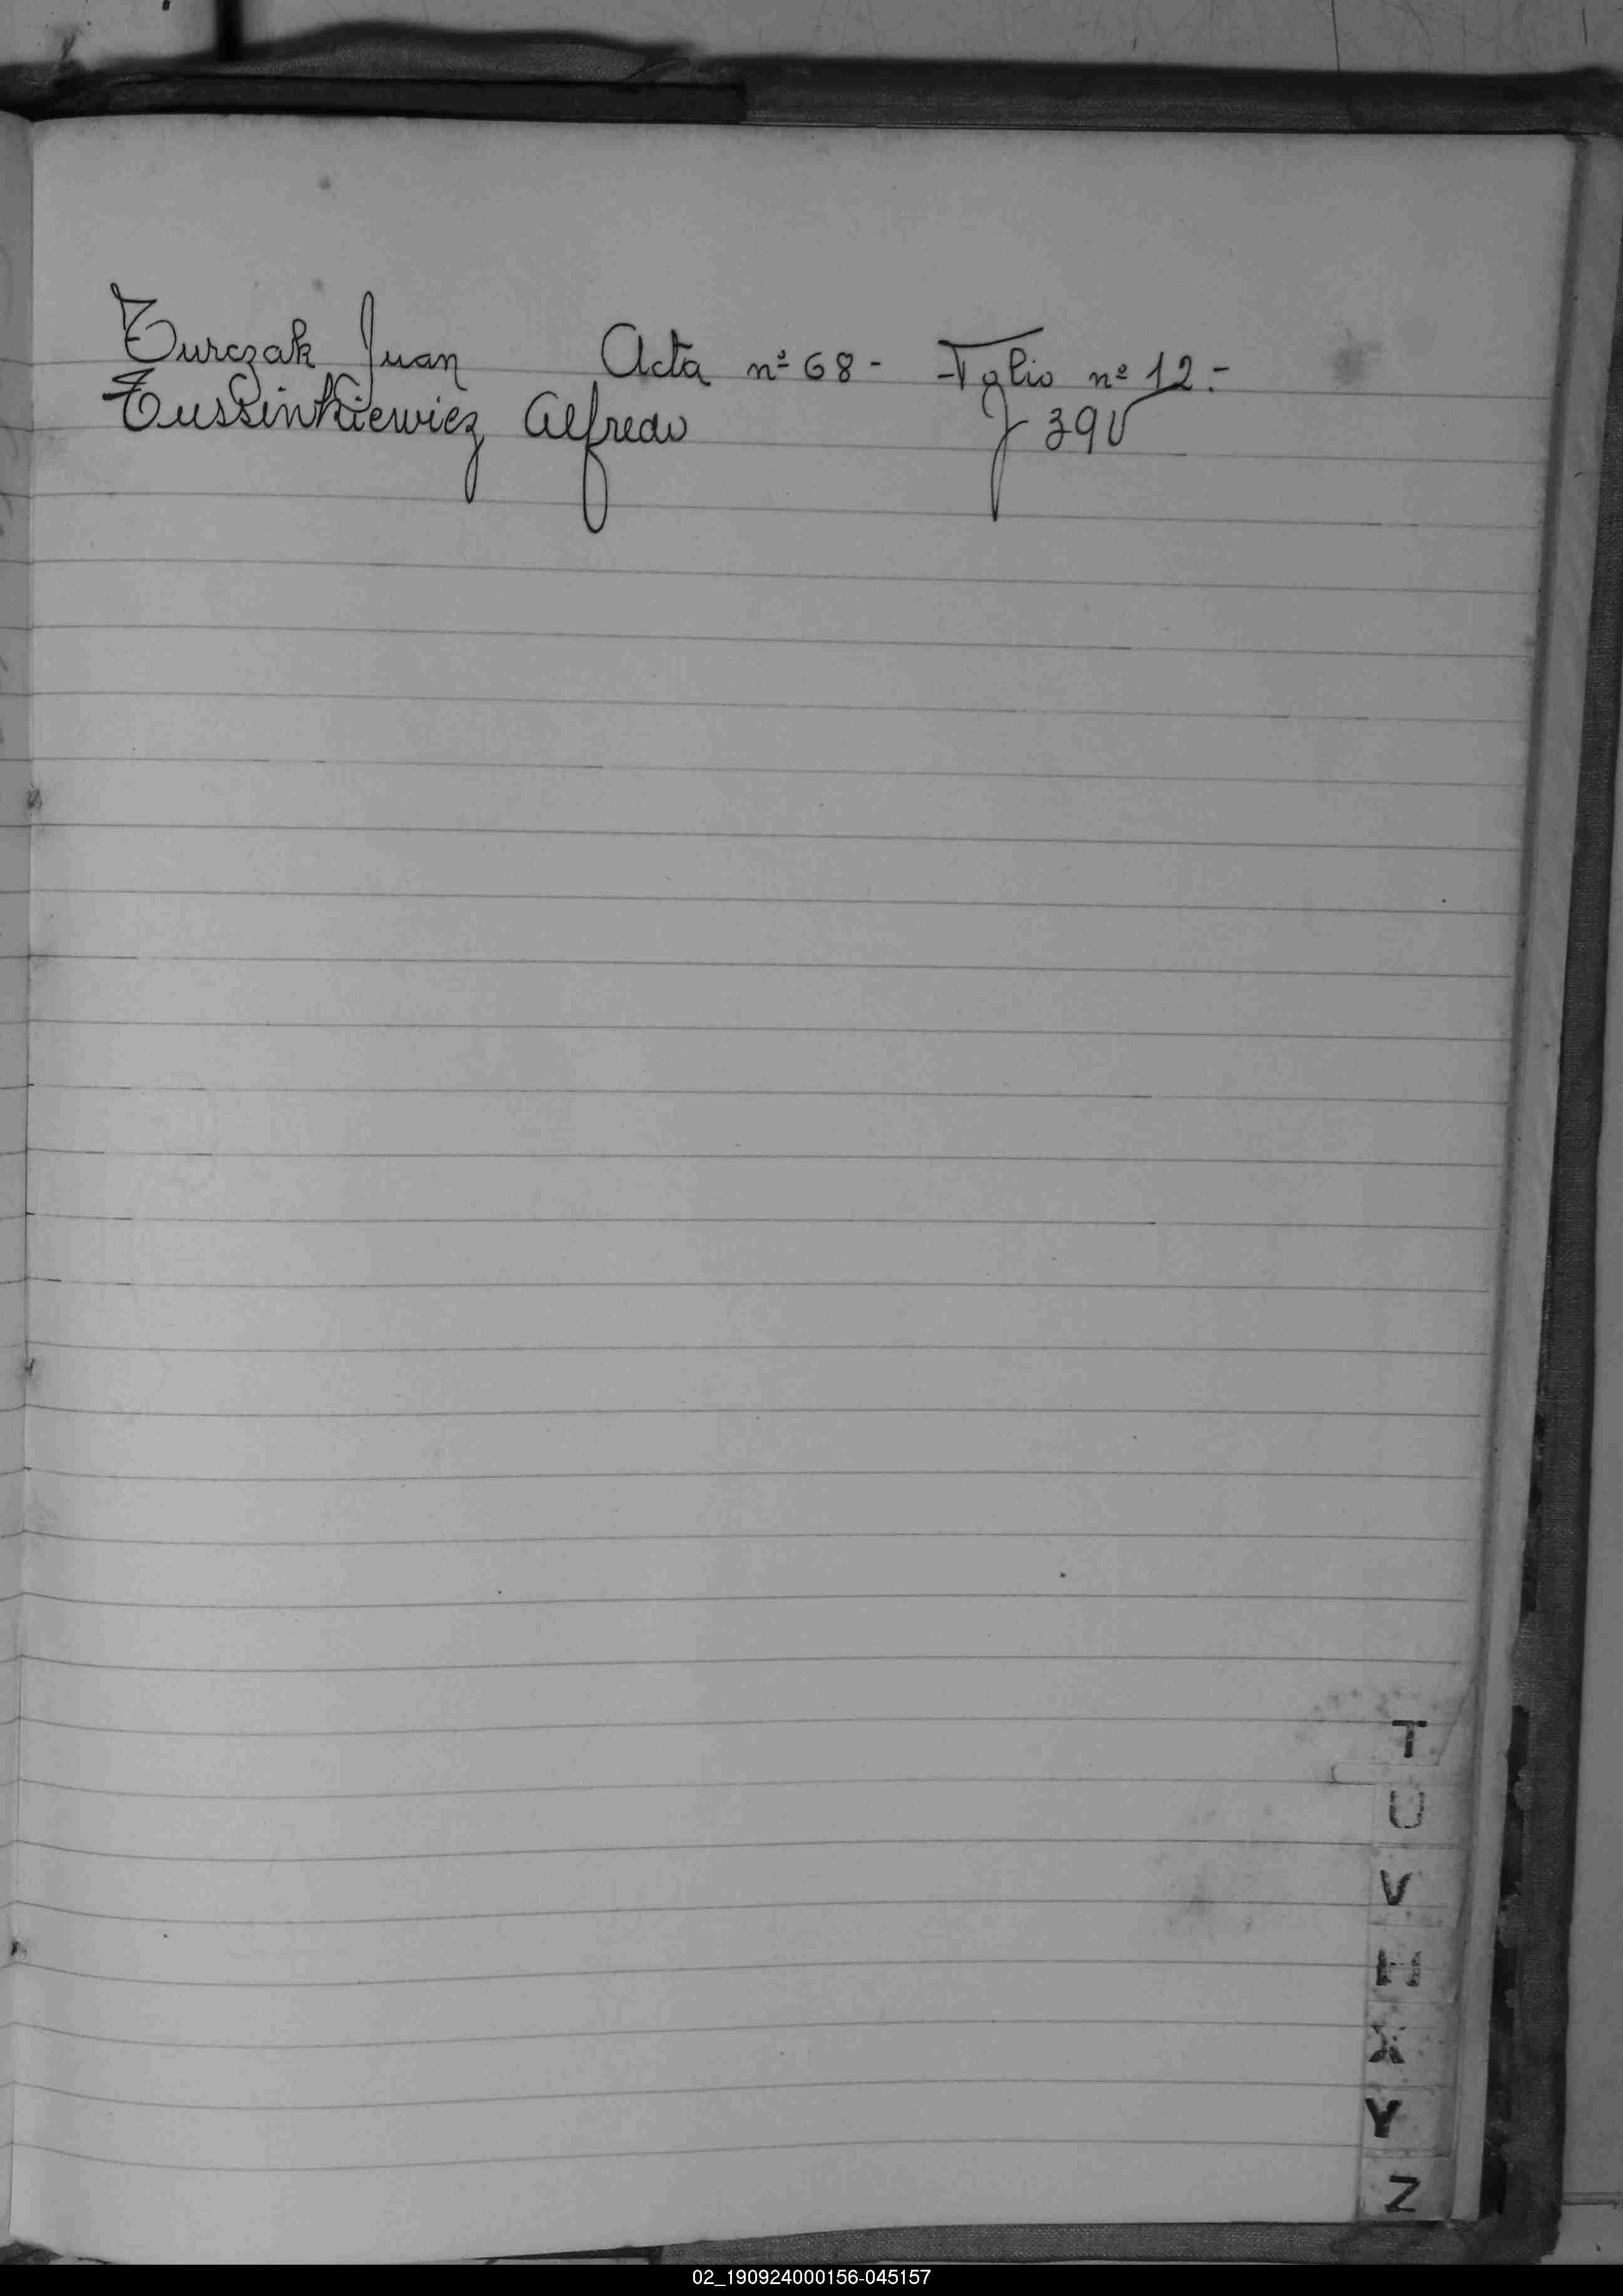 Turczak Juan Acta nº 68 - Folio nº 12.-
Tussinkiewicz Alfredo f 39V
T
U
V
X
Y
Z
02_190924000156-045157